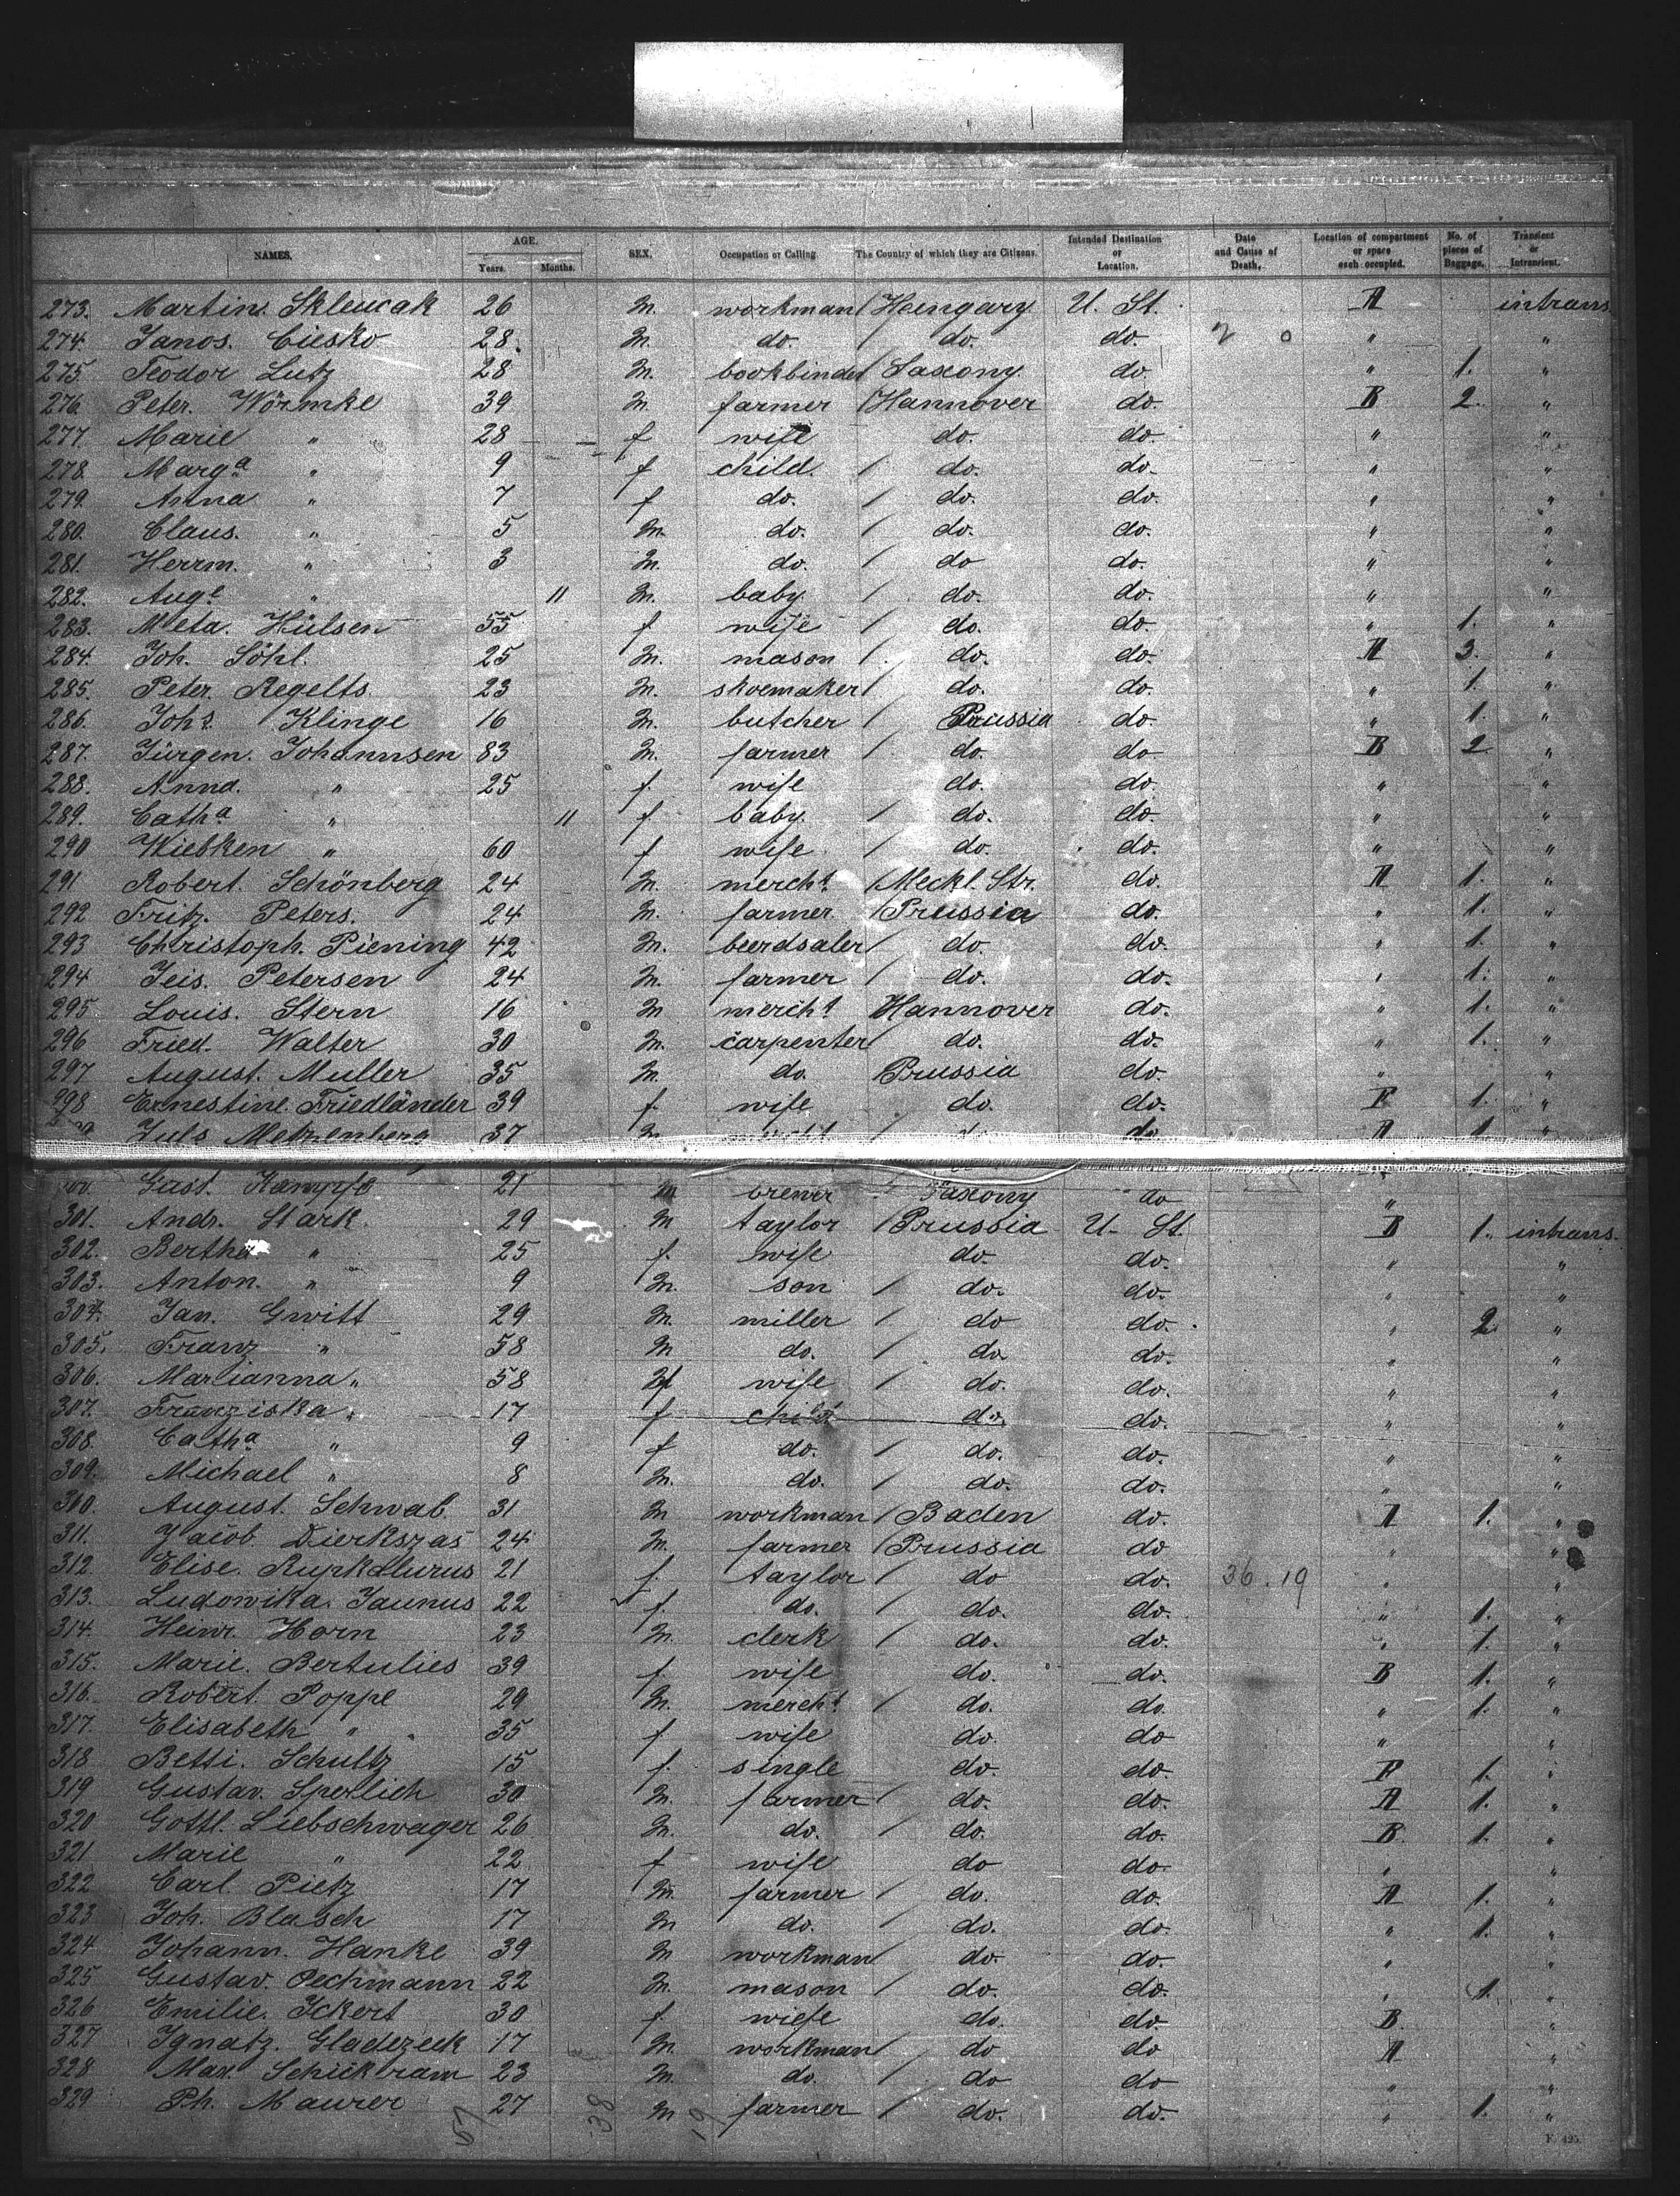 NAMES. AGE. Years. Months. SEX. Occupation or Calling The Country of which they are Citizens. Intended Destination or Location. Date and Cause of Death. Location of compartment or space each occupied. No. of pieces of Baggage. Transient or Intransient.
273. Martin. Sklencak 26 M. workman / Hungary U. St. A intrans
274. Janos. Ciesko 28. M. do. / do. do. " "
275. Teodor Lutz 28 M. bookbinder / Saxony. do. " 1. "
276. Peter. Wörmke 39 M. farmer / Hannover do. B 2. "
277. Marie " 28 f wife do. do. " "
278. Marga " 9 f child. / do. do. " "
279. Anna " 7 f do. / do. do. " "
280. Claus. " 5 M. do. / do. do. " "
281. Herrm. " 3 M. do. / do do. " "
282. Auge " 11 M. baby. / do. do. " "
283. Meta. Hülsen 55 f wife / do. do. " 1. "
284. Joh. Söhl. 25 M. mason / do. do. A 3. "
285. Peter. Regelts 23 M. shoemaker / do. do. " 1. "
286. Johs. Klinge 16 M. butcher / Prussia do. " 1. "
287. Jürgen. Johannsen 83 M. farmer / do. do. B 2 "
288. Anna. " 25 f. wife do. do. " "
289. Catha " 11 f. baby. / do. do. " "
290 Wiebken " 60 f wife / do. do. " "
291 Robert. Schönberg 24 M. mercht. / Meckl. Str. do. A 1. "
292 Fritz. Peters. 24 M. farmer / Prussia do. " 1. "
293 Christoph. Piening 42 M. beerdsaler / do. do. " 1. "
294 Jeis. Petersen 24 M. farmer / do. do. " 1. "
295 Louis. Stern 16 M mercht Hannover do. " 1. "
296 Fried. Walter 30 M. carpenter / do. do. " 1. "
297 August. Muller 35 M. do. Prussia do. " "
298 Ernestine. Friedländer 39 f. wife do. do. F 1. "
Juls Metzenberg 37 M do A 1. "
Gust. Kampfe 21 m brewer Saxony do "
301. Andr. Stark. 29 M taylor / Prussia U. St. B 1. intrans.
302. Bertha " 25 f. wife do. do. " "
303. Anton. " 9 M. son / do. do. " "
304. Jan. Gwitt 29 M. miller / do do. " 2. "
305. Franz " 58 M do. / do do. " "
306. Marianna " 58 f wife / do. do. " "
307. Franziska " 17 f child do. do. " "
308. Catha " 9 f do. / do. do. " "
309. Michael " 8 M. do. / do. do. " "
310. August. Schwab. 31 M workman / Baden do. A 1. "
311. Jacob. Dierkszas 24 M. farmer / Prussia do " "
312 Elise. Rupkalurus 21 f. taylor / do do. 36.19 " "
313. Ludowika. Jaunus 22 f. do. / do. do. " 1. "
314. Heinr. Horn 23 M. clerk / do. do. " 1. "
315. Marie. Bertulies 39 f. wife do. do. B 1. "
316. Robert. Poppe 29 M. mercht. / do. do. " 1. "
317. Elisabeth " 35 f wife do. do " "
318 Betti. Schultz 15 f. single do. do. F 1. "
319 Gustav. Sperlich 30 M. farmer / do. do. A 1. "
320 Gottl. Liebschwager 26 M. do. / do. do. B. 1. "
321 Marie " 22 f wife do do. " "
322 Carl. Pietz 17 M. farmer / do. do. A 1. "
323 Joh. Blasch 17 M do. / do. do. " 1. "
324 Johann. Hanke 39 M workman / do. do. " "
325 Gustav. Pechmann 22 M. mason / do. do. " 1. "
326 Emilie. Ickert 30 f. wife do. do. B. "
327 Ignatz. Gladezeck 17 M. workman / do do A "
328 Max. Schickram 23 M. do. / do do " "
329 Ph. Maurer 27 M farmer / do. do. " 1. "
38 19